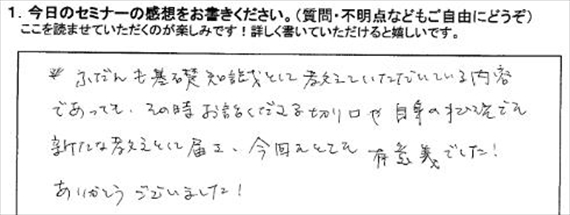 1. 今日のセミナーの感想をお書きください。(質問・不明点などもご自由にどうぞ)
ここを読ませていただくのが楽しみです!詳しく書いていただけると嬉しいです。
* ふだんも基礎知識として教えていただいている内容
であっても、その時お話くださる切り口や自身の状況でも
新たな教えとして届き、今回もとても有意義でした!
ありがとうございました!